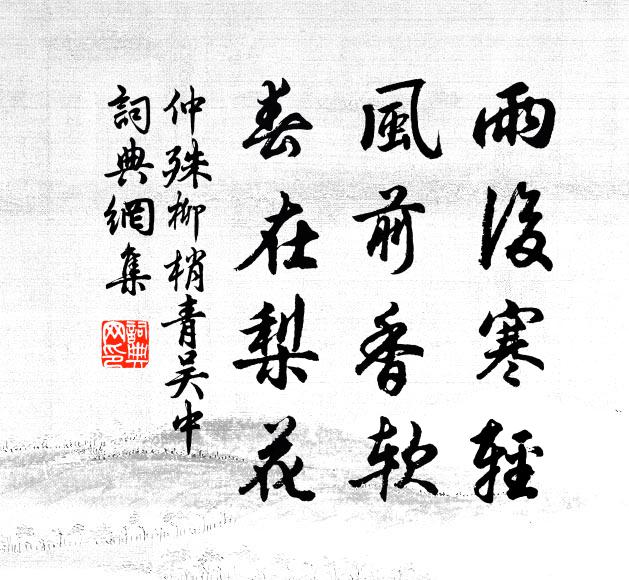 雨後寒輕
風前香軟
春在梨花
仲殊柳梢青吳中
詞典網集
詞典
网印